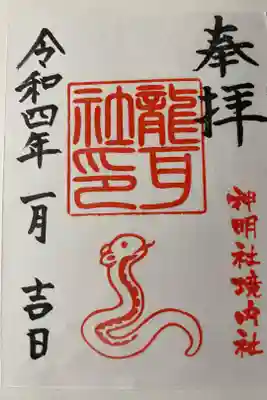 奉拝
神明社境内社
龍耳社印
令和四年 一月 吉日